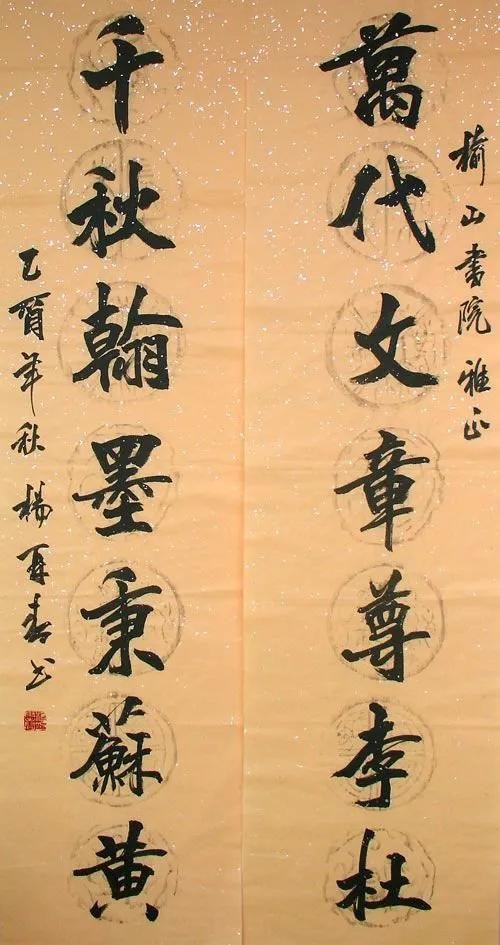 榆山書院雅正
萬代文章尊李杜
千秋翰墨秉蘇黄
乙酉年秋 楊再春书